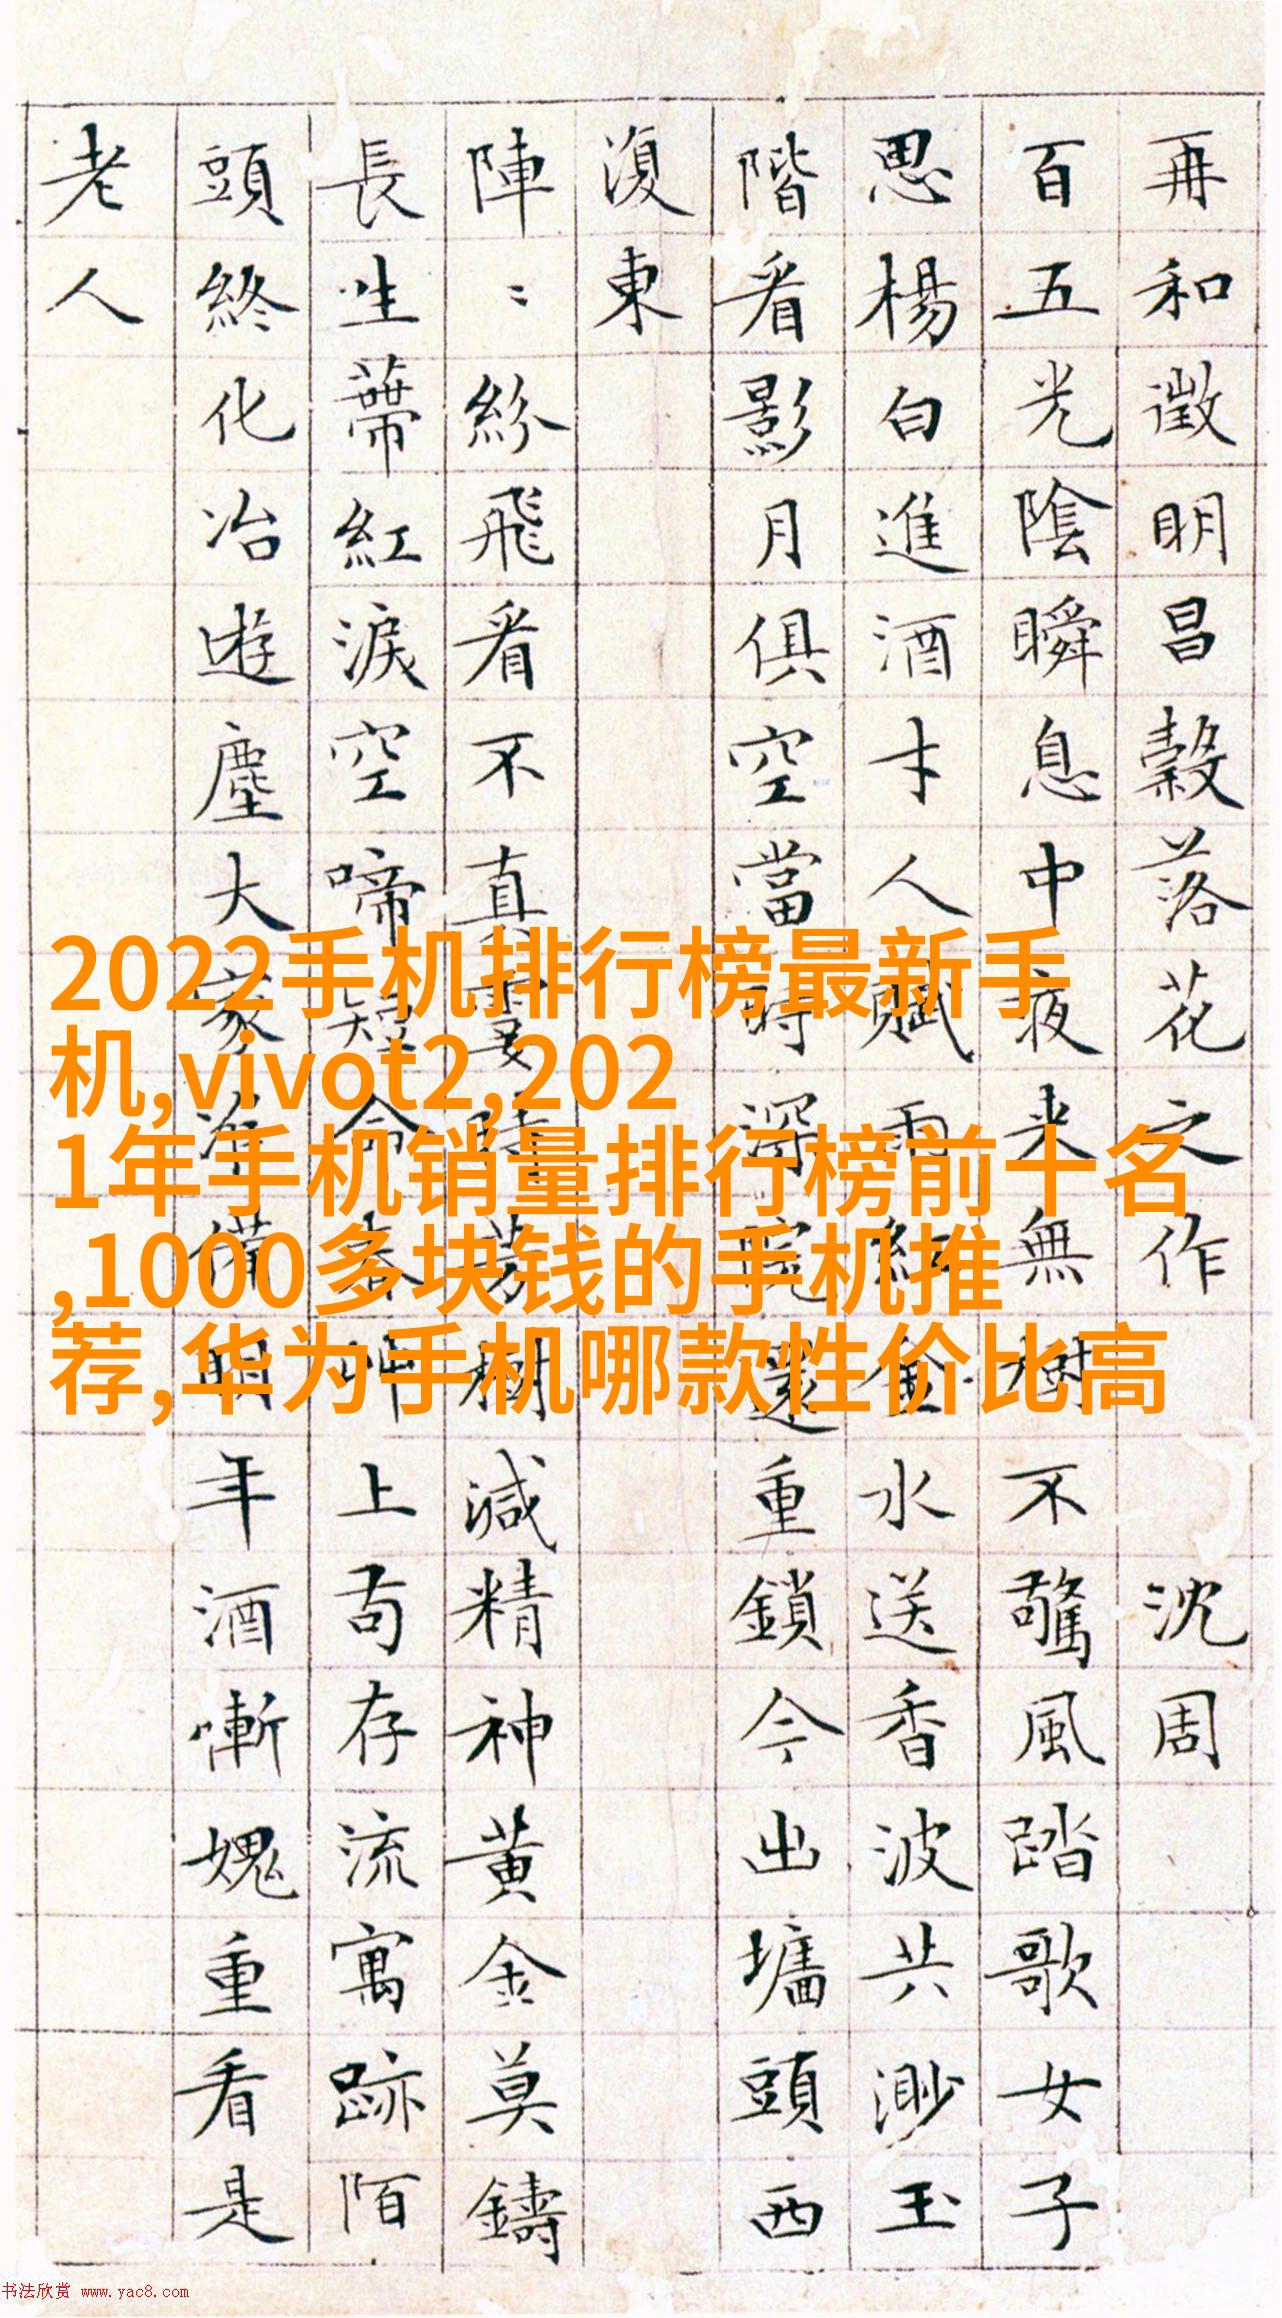 再和徵明昌穀落花之作 沈周
百五光陰瞬息中夜来無樹不驚風踏歌女子
思楊白進酒才人賦雨紅金水送香波共渺玉
階看影月俱空當時深院還重鎖今出墻頭西
復東
陣〻紛飛看不真霎時芳樹減精神黄金莫鑄
長生蒂紅淚空啼短命春艸上苟存流寓跡陌
頭終化冶遊塵大家准備明年酒慚愧重看是
老人
2022手机排行榜最新手
机,vivot2,202
1年手机销量排行榜前十名
,1000多块钱的手机推
荐,华为手机哪款性价比高
书法欣赏 www.yac8.com